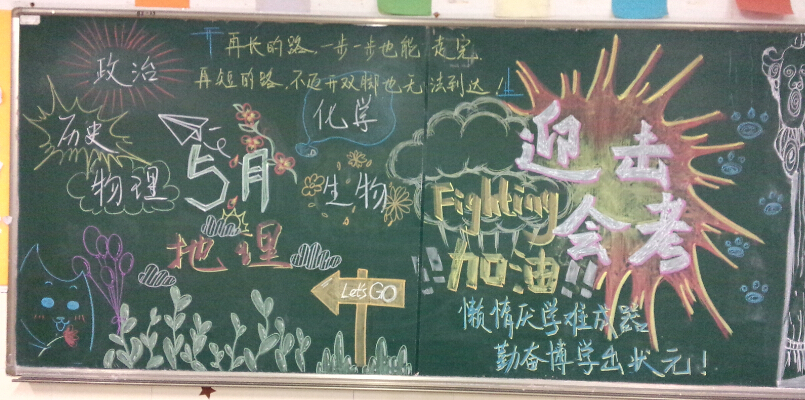 再长的路，一步一步也能走完，
再短的路，不迈开双脚也无法到达！
政治
历史
物理
5月
化学
生物
地理
Let's GO
迎击
会考
Fighting
加油!!
懒惰厌学难成器
勤奋博学出状元！